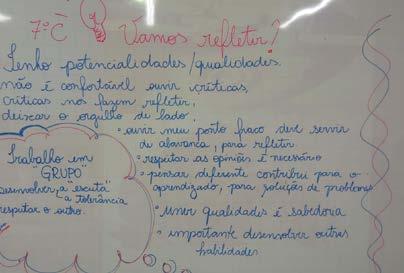 7º C Vamos refletir?
Tenho potencialidades/qualidades.
não é confortável ouvir críticas,
críticas nos fazem refletir,
deixar o orgulho de lado.
• ouvir meu ponto fraco deve servir
de alavanca, para refletir.
• respeitar as opiniões é necessário
• pensar diferente contribui para o
aprendizado, para soluções de problemas
• unir qualidades é sabedoria
• importante desenvolver outras
habilidades
Trabalho em
"GRUPO"
desenvolver, a "escuta"
a tolerância
respeitar o outro.